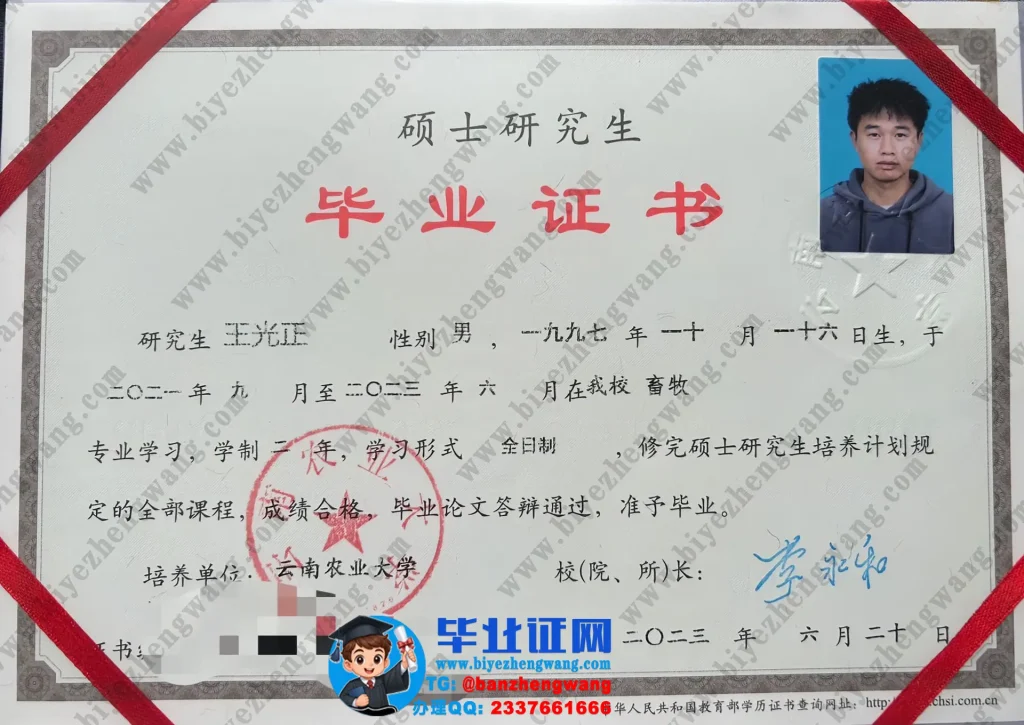 硕士研究生
毕业证书
研究生 王光正 性别 男 ， 一九九七 年 一十 月 一十六 日生，于
二〇二一 年 九 月至 二〇二三 年 六 月在我校 畜牧
专业学习，学制 二 年，学习形式 全日制 ，修完硕士研究生培养计划规
定的全部课程，成绩合格，毕业论文答辩通过，准予毕业。
培养单位：云南农业大学 校(院、所)长： 李永和
证书
二〇二三 年 六 月 二十 日
毕业证网
www.biyezhengwang.com
TG: @banzhengwang
办理QQ: 2337661666
华人民共和国教育部学历证书查询网址：http:
chsi.com.cn
www.biyezhengwang.com